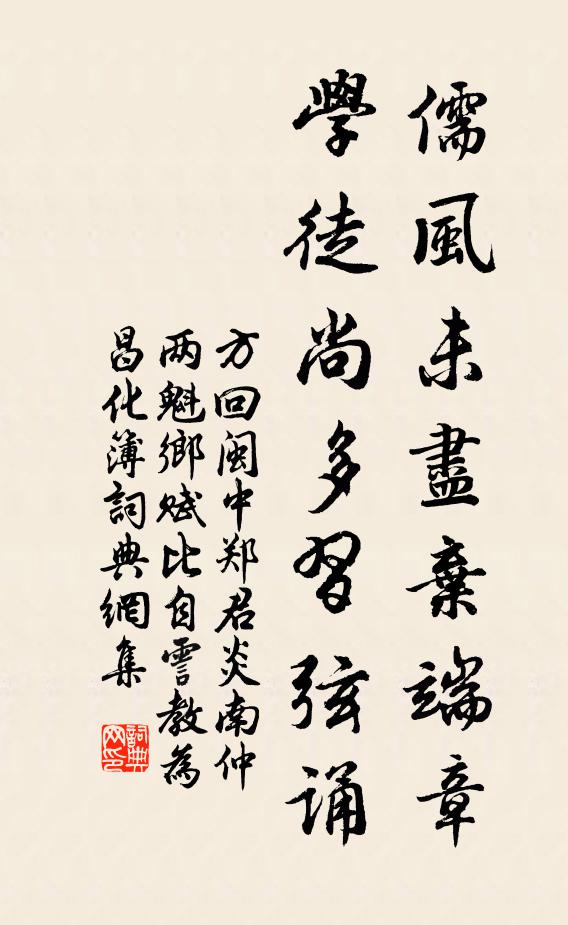 儒風未盡棄端章
學徒尚多習弦诵
方回闽中郑君炎南仲
两魁鄉赋比自雩教為
昌化簿詞典網集
詞典网印